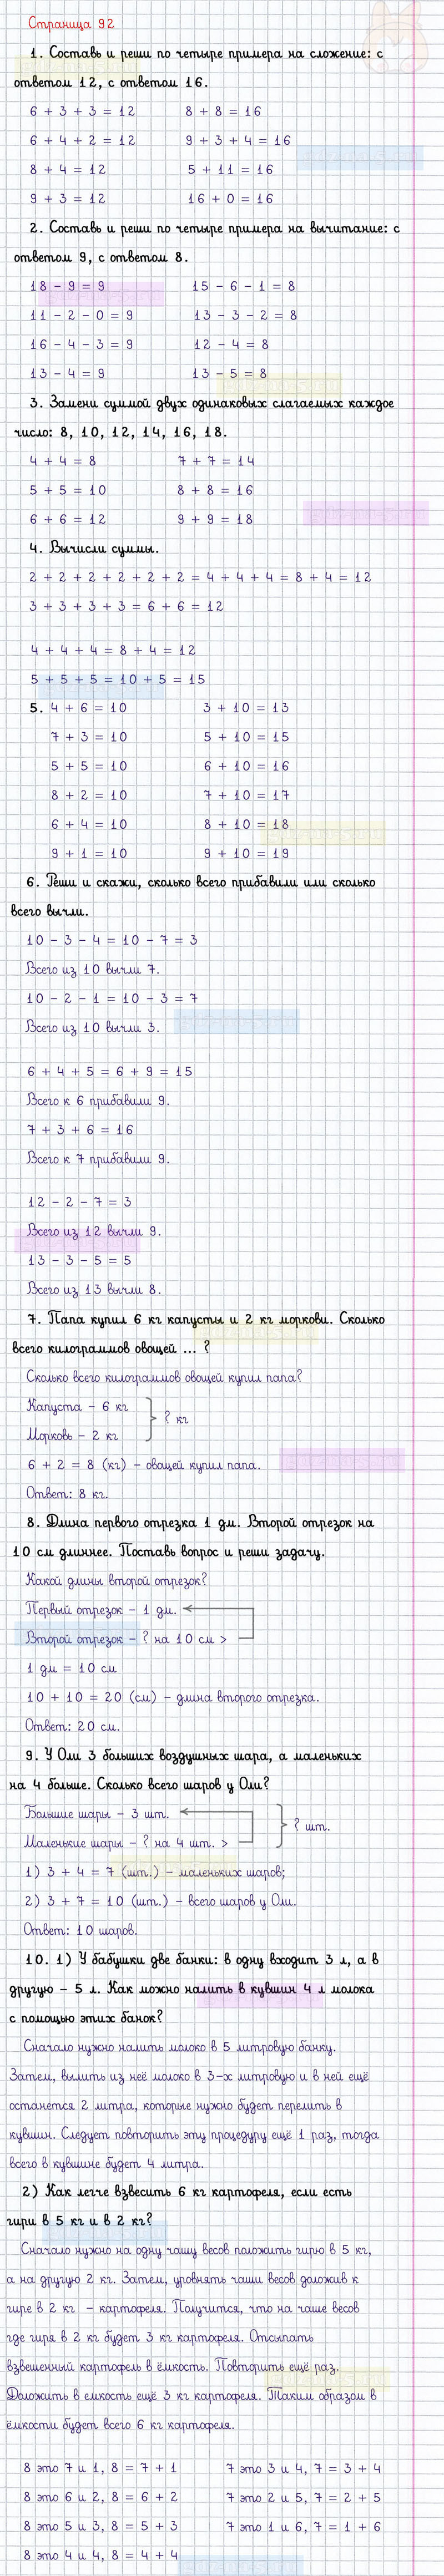 Страница 92
1. Составь и реши по четыре примера на сложение: с
ответом 12, с ответом 16.
6 + 3 + 3 = 12 8 + 8 = 16
6 + 4 + 2 = 12 9 + 3 + 4 = 16
8 + 4 = 12 5 + 11 = 16
9 + 3 = 12 16 + 0 = 16
2. Составь и реши по четыре примера на вычитание: с
ответом 9, с ответом 8.
18 - 9 = 9 15 - 6 - 1 = 8
11 - 2 - 0 = 9 13 - 3 - 2 = 8
16 - 4 - 3 = 9 12 - 4 = 8
13 - 4 = 9 13 - 5 = 8
3. Замени суммой двух одинаковых слагаемых каждое
число: 8, 10, 12, 14, 16, 18.
4 + 4 = 8 7 + 7 = 14
5 + 5 = 10 8 + 8 = 16
6 + 6 = 12 9 + 9 = 18
4. Вычисли суммы.
2 + 2 + 2 + 2 + 2 + 2 = 4 + 4 + 4 = 8 + 4 = 12
3 + 3 + 3 + 3 = 6 + 6 = 12
4 + 4 + 4 = 8 + 4 = 12
5 + 5 + 5 = 10 + 5 = 15
5. 4 + 6 = 10 3 + 10 = 13
7 + 3 = 10 5 + 10 = 15
5 + 5 = 10 6 + 10 = 16
8 + 2 = 10 7 + 10 = 17
6 + 4 = 10 8 + 10 = 18
9 + 1 = 10 9 + 10 = 19
6. Реши и скажи, сколько всего прибавили или сколько
всего вычли.
10 - 3 - 4 = 10 - 7 = 3
Всего из 10 вычли 7.
10 - 2 - 1 = 10 - 3 = 7
Всего из 10 вычли 3.
6 + 4 + 5 = 6 + 9 = 15
Всего к 6 прибавили 9.
7 + 3 + 6 = 16
Всего к 7 прибавили 9.
12 - 2 - 7 = 3
Всего из 12 вычли 9.
13 - 3 - 5 = 5
Всего из 13 вычли 8.
7. Папа купил 6 кг капусты и 2 кг моркови. Сколько
всего килограммов овощей ... ?
Сколько всего килограммов овощей купил папа?
Капуста - 6 кг
? кг
Морковь - 2 кг
6 + 2 = 8 (кг) - овощей купил папа.
Ответ: 8 кг.
8. Длина первого отрезка 1 дм. Второй отрезок на
10 см длиннее. Поставь вопрос и реши задачу.
Какой длины второй отрезок?
Первый отрезок - 1 дм.
Второй отрезок - ? на 10 см >
1 дм = 10 см
10 + 10 = 20 (см) - длина второго отрезка.
Ответ: 20 см.
9. У Оли 3 больших воздушных шара, а маленьких
на 4 больше. Сколько всего шаров у Оли?
Большие шары - 3 шт.
? шт.
Маленькие шары - ? на 4 шт. >
1) 3 + 4 = 7 (шт.) - маленьких шаров;
2) 3 + 7 = 10 (шт.) - всего шаров у Оли.
Ответ: 10 шаров.
10. 1) У бабушки две банки: в одну входит 3 л, а в
другую - 5 л. Как можно налить в кувшин 4 л молока
с помощью этих банок?
Сначало нужно налить молоко в 5 литровую банку.
Затем, вылить из неё молоко в 3-х литровую и в ней ещё
останется 2 литра, которые нужно будет перелить в
кувшин. Следует повторить эту процедуру ещё 1 раз, тогда
всего в кувшине будет 4 литра.
2) Как легче взвесить 6 кг картофеля, если есть
гири в 5 кг и в 2 кг?
Сначало нужно на одну чашу весов положить гирю в 5 кг,
а на другую 2 кг. Затем, уровнять чаши весов доложив к
гире в 2 кг - картофеля. Получится, что на чаше весов
где гиря в 2 кг будет 3 кг картофеля. Отсыпать
взвешенный картофель в ёмкость. Повторить ещё раз.
Доложить в емкость ещё 3 кг картофеля. Таким образом в
ёмкости будет всего 6 кг картофеля.
8 это 7 и 1, 8 = 7 + 1 7 это 3 и 4, 7 = 3 + 4
8 это 6 и 2, 8 = 6 + 2 7 это 2 и 5, 7 = 2 + 5
8 это 5 и 3, 8 = 5 + 3 7 это 1 и 6, 7 = 1 + 6
8 это 4 и 4, 8 = 4 + 4